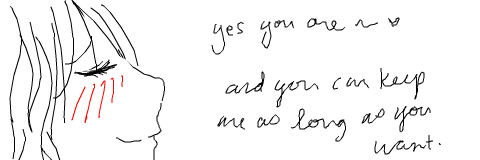 yes you are ~ ♥
and you can keep
me as long as you
want.